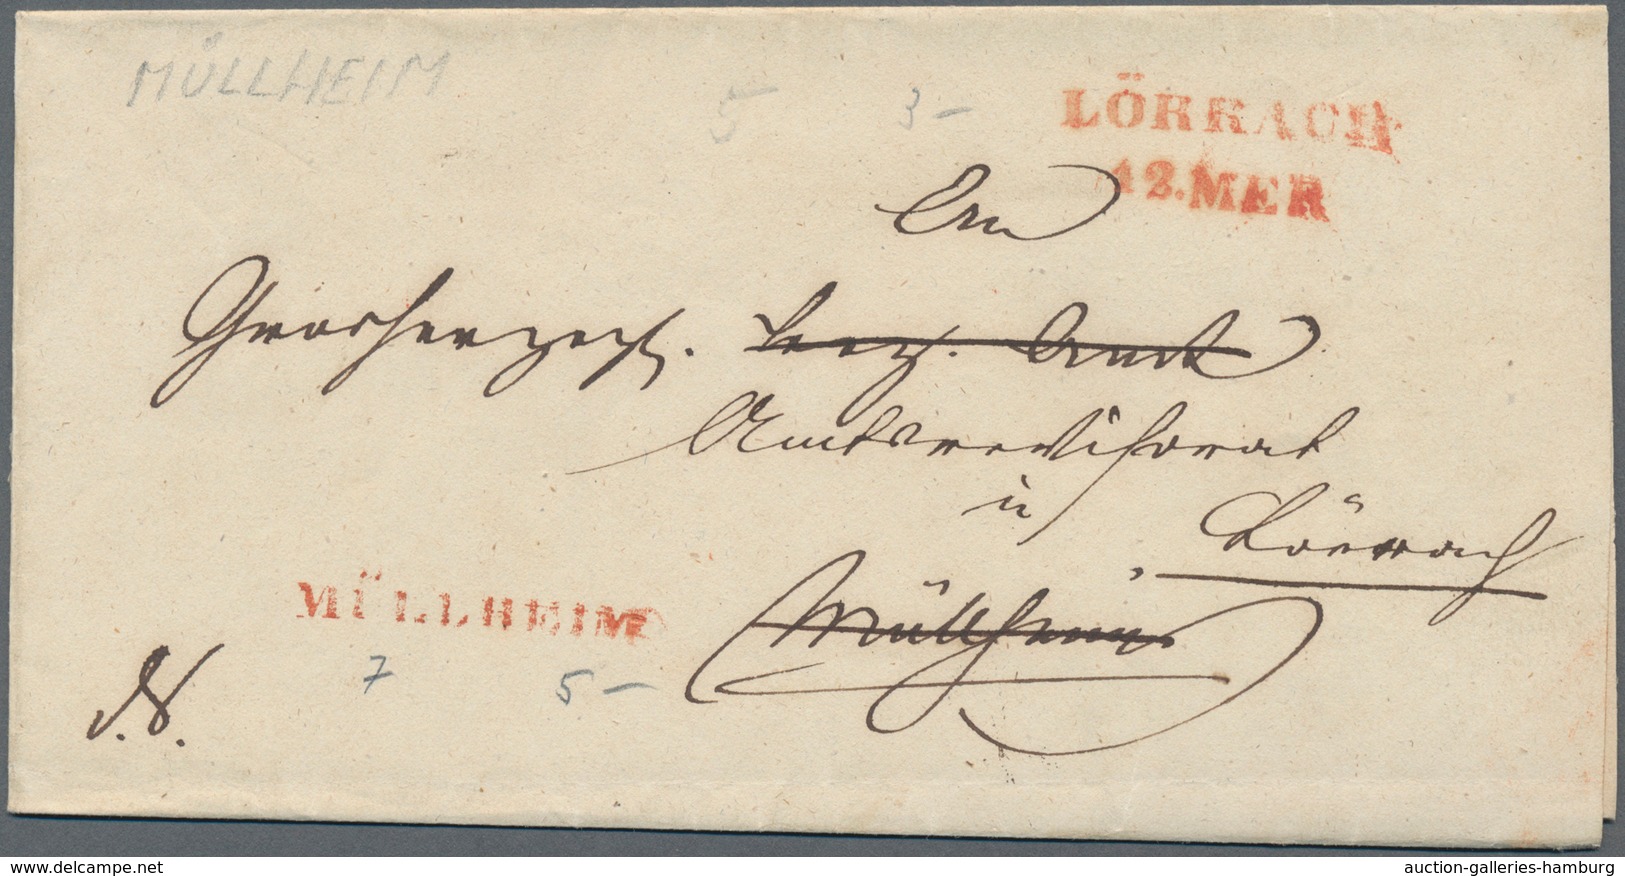 MÜLLHEIM
5 3-
LÖRRACH
12.MER
An
Grosherzogl. Bez. Amt
Amtsrevisorat
in
Lörrach
MÜLLHEIM
Müllheim
7 5-
d. S.
delcampe.net
auction-galleries-hamburg